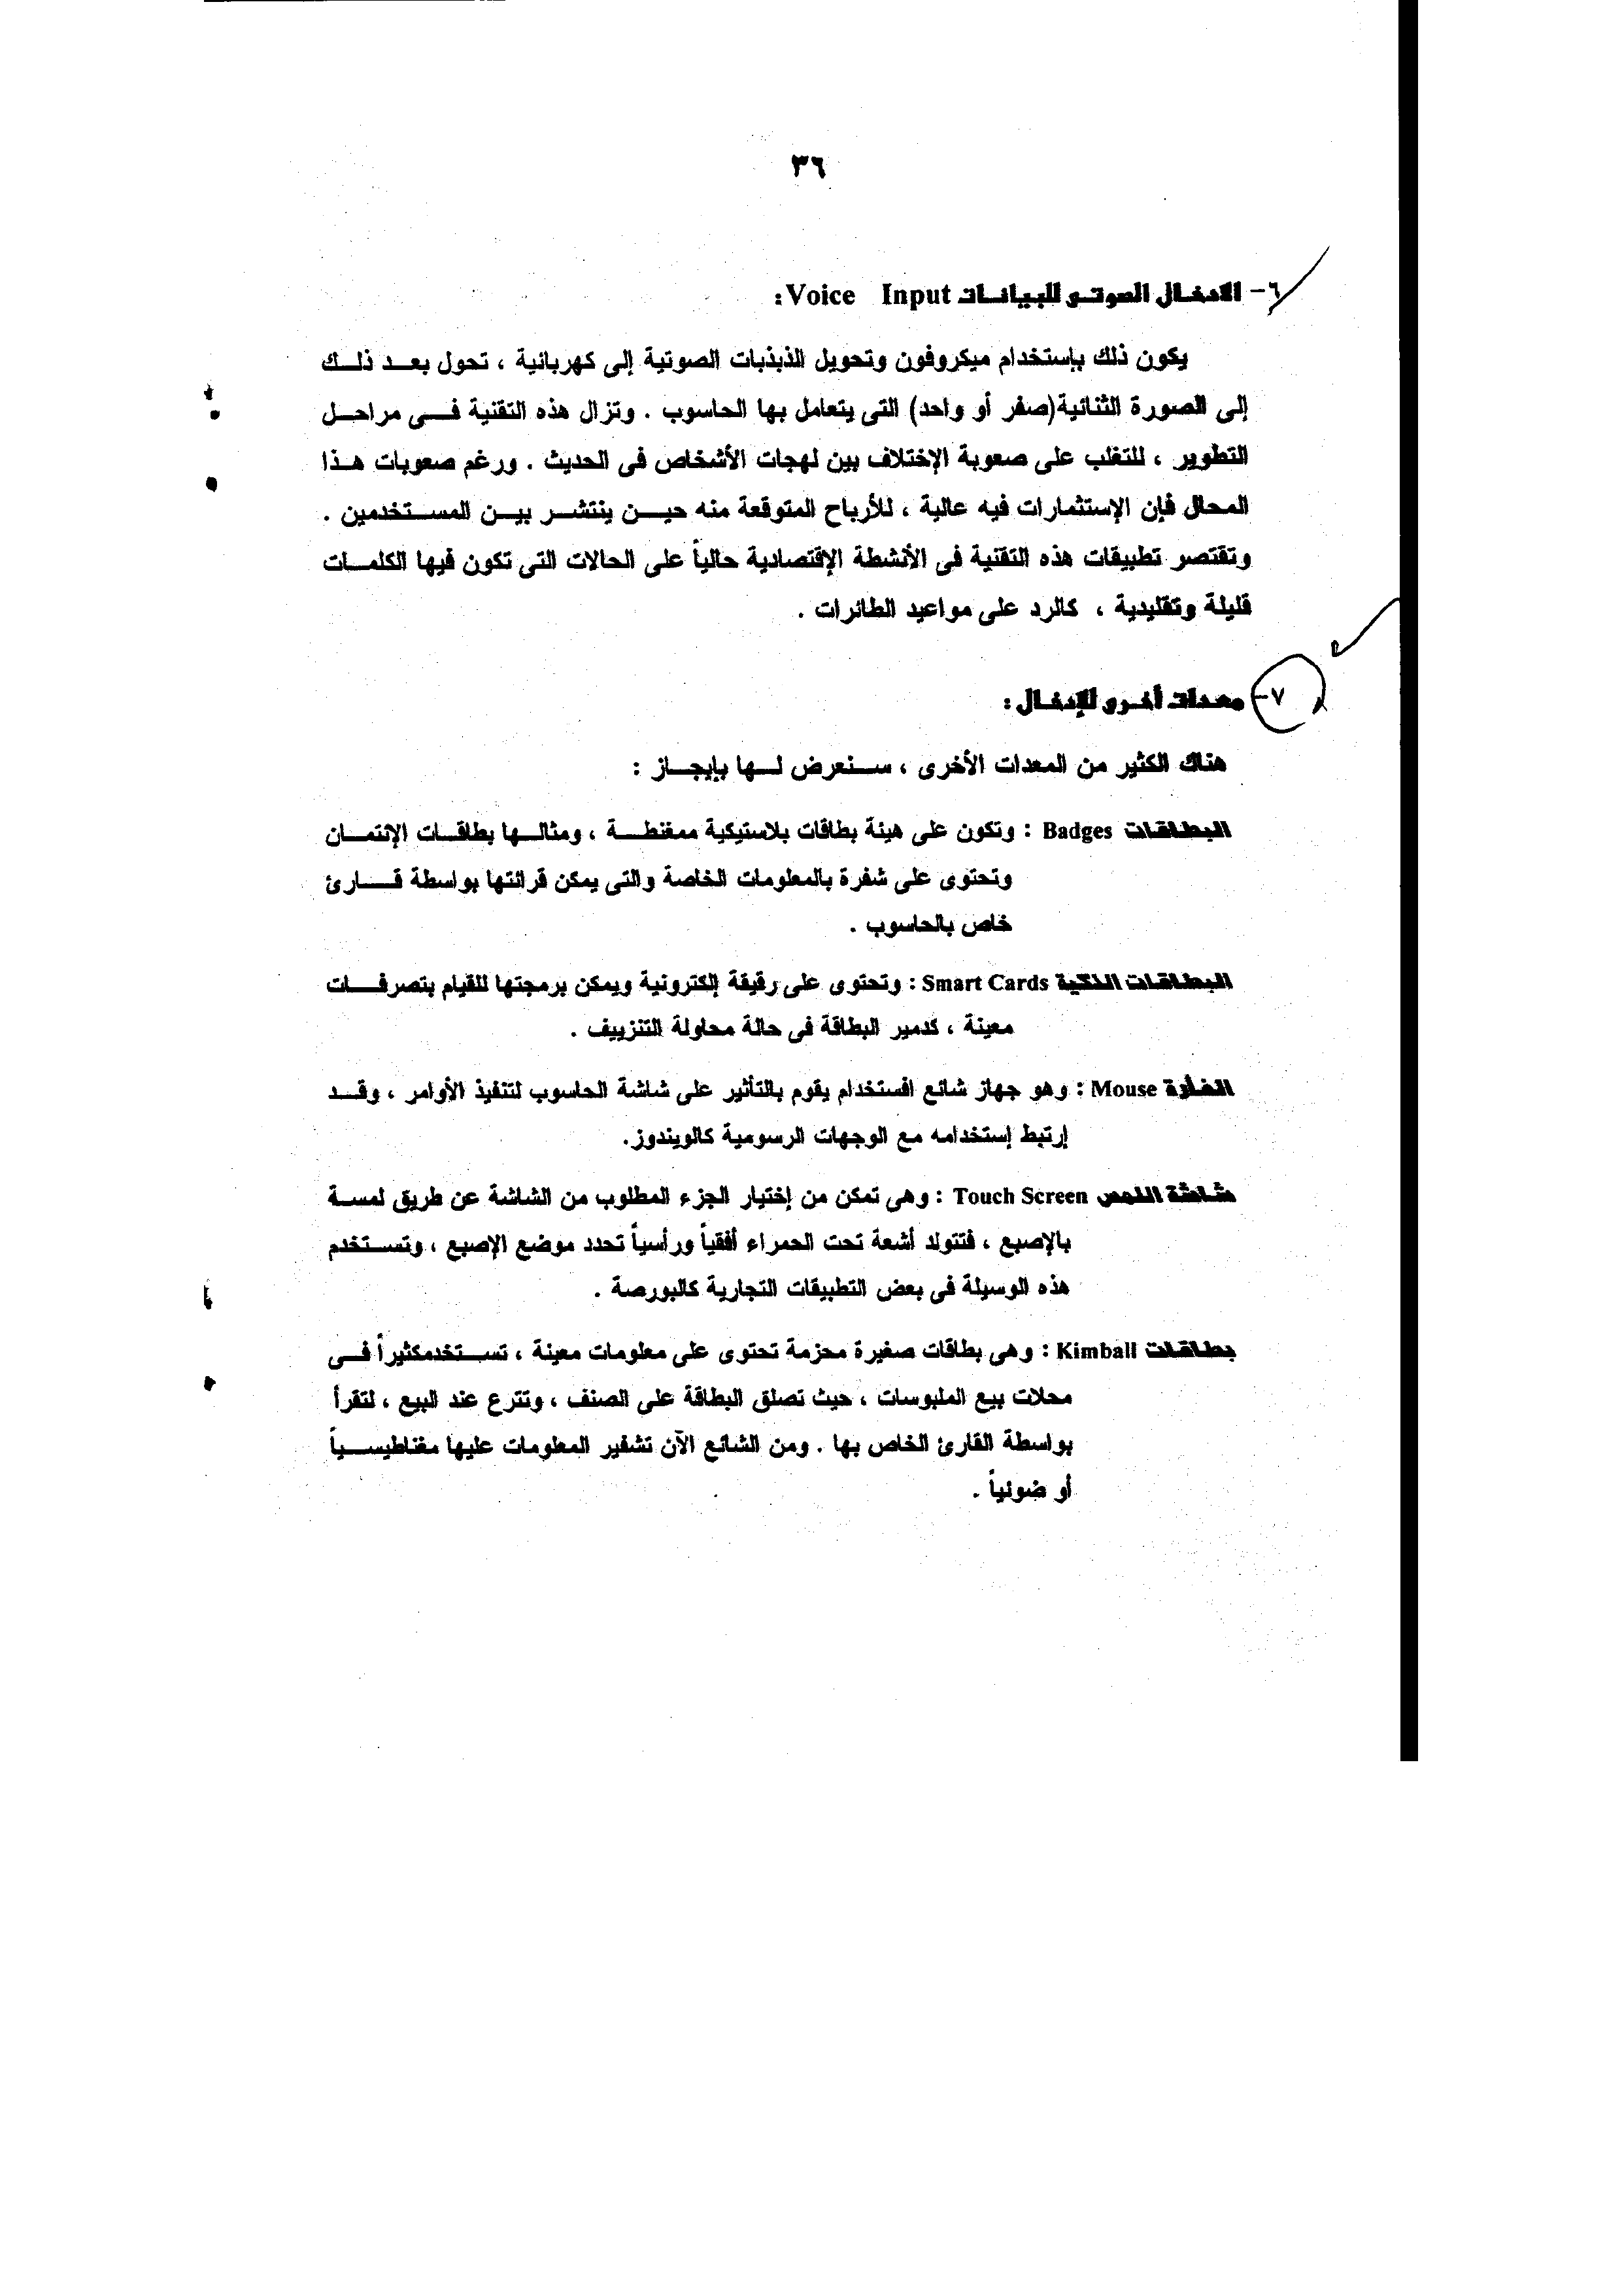 ٣٦
٦- الادخال الصوتى للبيانات Voice Input:
يكون ذلك بإستخدام ميكروفون وتحويل الذبذبات الصوتية إلى كهربائية ، تحول بعد ذلك
إلى الصورة الثنائية(صفر أو واحد) التى يتعامل بها الحاسوب . وتزال هذه التقنية فى مراحل
التطوير ، للتغلب على صعوبة الإختلاف بين لهجات الأشخاص فى الحديث . ورغم صعوبات هذا
المجال فإن الإستثمارات فيه عالية ، للأرباح المتوقعة منه حين ينتشر بين المستخدمين .
وتقتصر تطبيقات هذه التقنية فى الأنشطة الإقتصادية حالياً على الحالات التى تكون فيها الكلمات
قليلة وتقليدية ، كالرد على مواعيد الطائرات .
٧- معدات أخرى للإدخال :
هناك الكثير من المعدات الأخرى ، سنعرض لها بإيجاز :
البطاقات Badges : وتكون على هيئة بطاقات بلاستيكية ممغنطة ، ومثالها بطاقات الإئتمان
وتحتوى على شفرة بالمعلومات الخاصة والتى يمكن قرائتها بواسطة قارئ
خاص بالحاسوب .
البطاقات الذكية Smart Cards : وتحتوى على رقيقة إلكترونية ويمكن برمجتها للقيام بتصرفات
معينة ، كدمير البطاقة فى حالة محاولة التنزييف .
الفأرة Mouse : وهو جهاز شائع افستخدام يقوم بالتأثير على شاشة الحاسوب لتنفيذ الأوامر ، وقد
إرتبط إستخدامه مع الوجهات الرسومية كالويندوز.
شاشة اللمس Touch Screen : وهى تمكن من إختيار الجزء المطلوب من الشاشة عن طريق لمسة
بالإصبع ، فتتولد أشعة تحت الحمراء أفقياً ورأسياً تحدد موضع الإصبع ، وتستخدم
هذه الوسيلة فى بعض التطبيقات التجارية كالبورصة .
بطاقات Kimball : وهى بطاقات صغيرة محزمة تحتوى على معلومات معينة ، تستخدمكثيراً فى
محلات بيع الملبوسات ، حيث تصلق البطاقة على الصنف ، وتترع عند البيع ، لتقرأ
بواسطة القارئ الخاص بها . ومن الشائع الآن تشفير المعلومات عليها مغناطيسياً
أو ضوئياً .